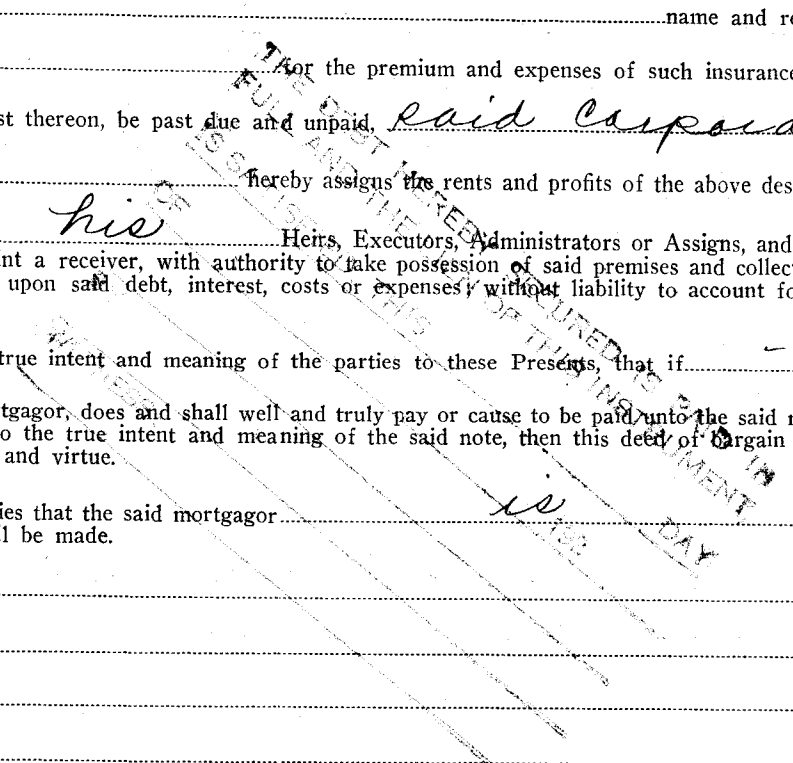 name and re
for the premium and expenses of such insurance
st thereon, be past due and unpaid, said Corpora
hereby assigns the rents and profits of the above des
his Heirs, Executors, Administrators or Assigns, and
nt a receiver, with authority to take possession of said premises and collec
upon said debt, interest, costs or expenses; without liability to account fo
true intent and meaning of the parties to these Presents, that if
tgagor, does and shall well and truly pay or cause to be paid unto the said
o the true intent and meaning of the said note, then this deed of bargain
and virtue.
ies that the said mortgagor is
l be made.
THE DEBT HEREBY SECURED IS PAID IN
FULL AND THE LIEN OF THIS INSTRUMENT
IS SATISFIED THIS DAY
OF 192
WITNESS